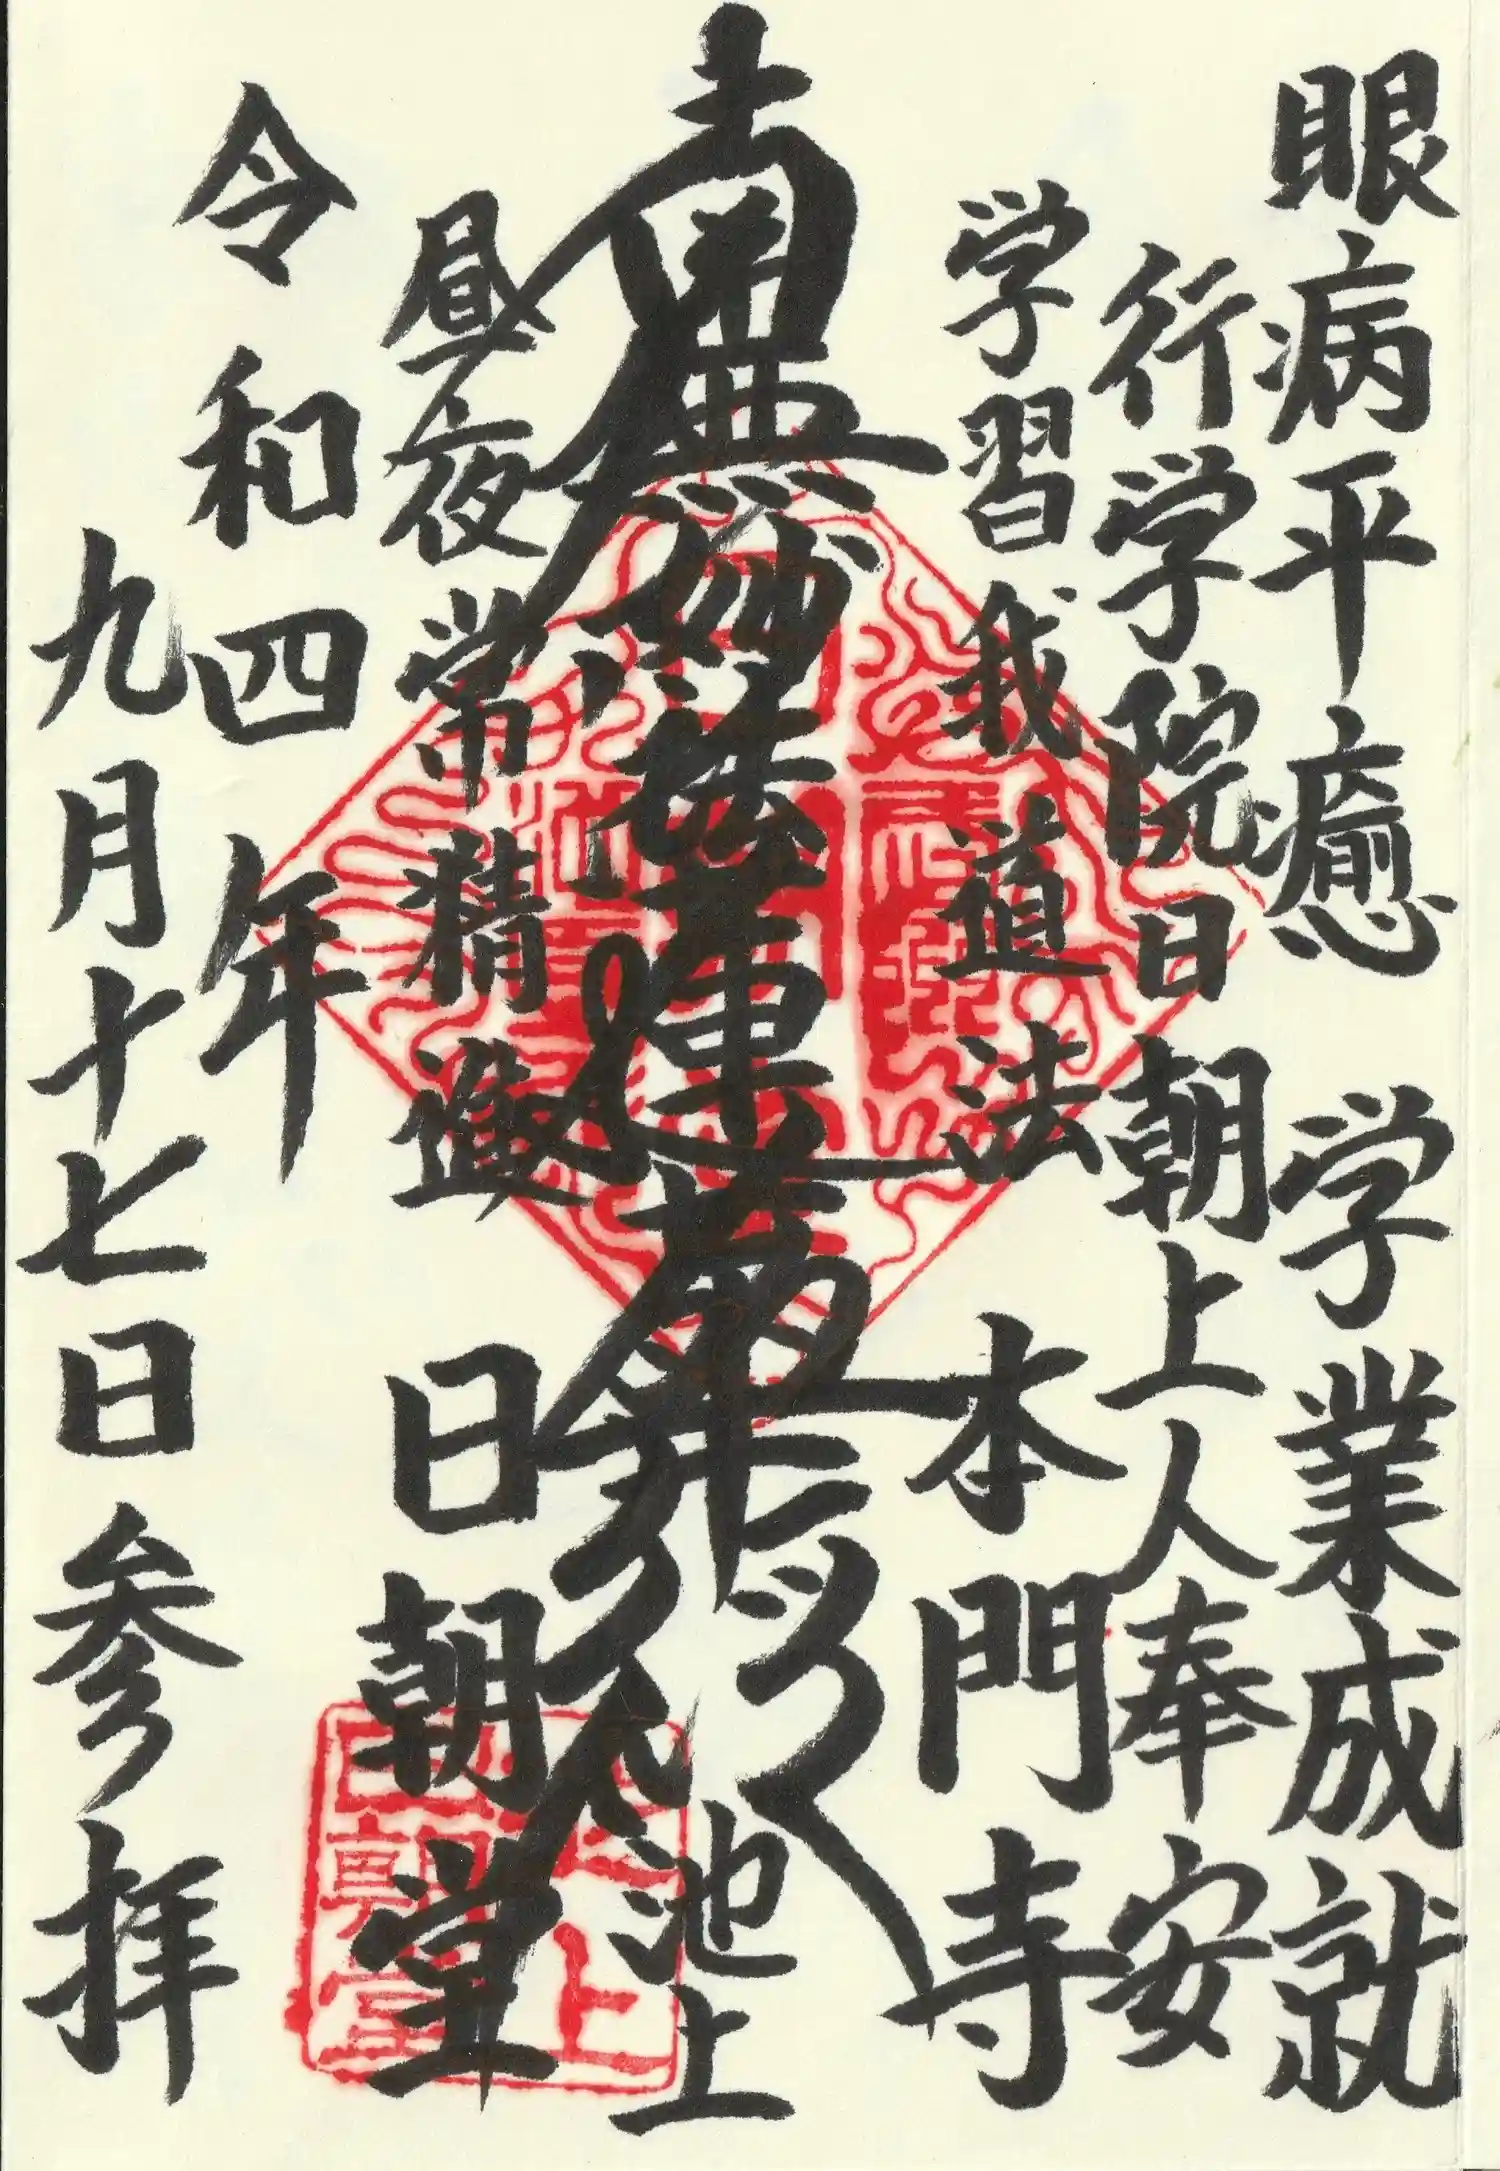 眼病平癒 学業成就
行学院日朝上人奉安
学習我道法 本門寺
南無妙法蓮華経
池上
昼夜常精進 日朝堂
令和四年
九月十七日参拝
池上
日朝堂